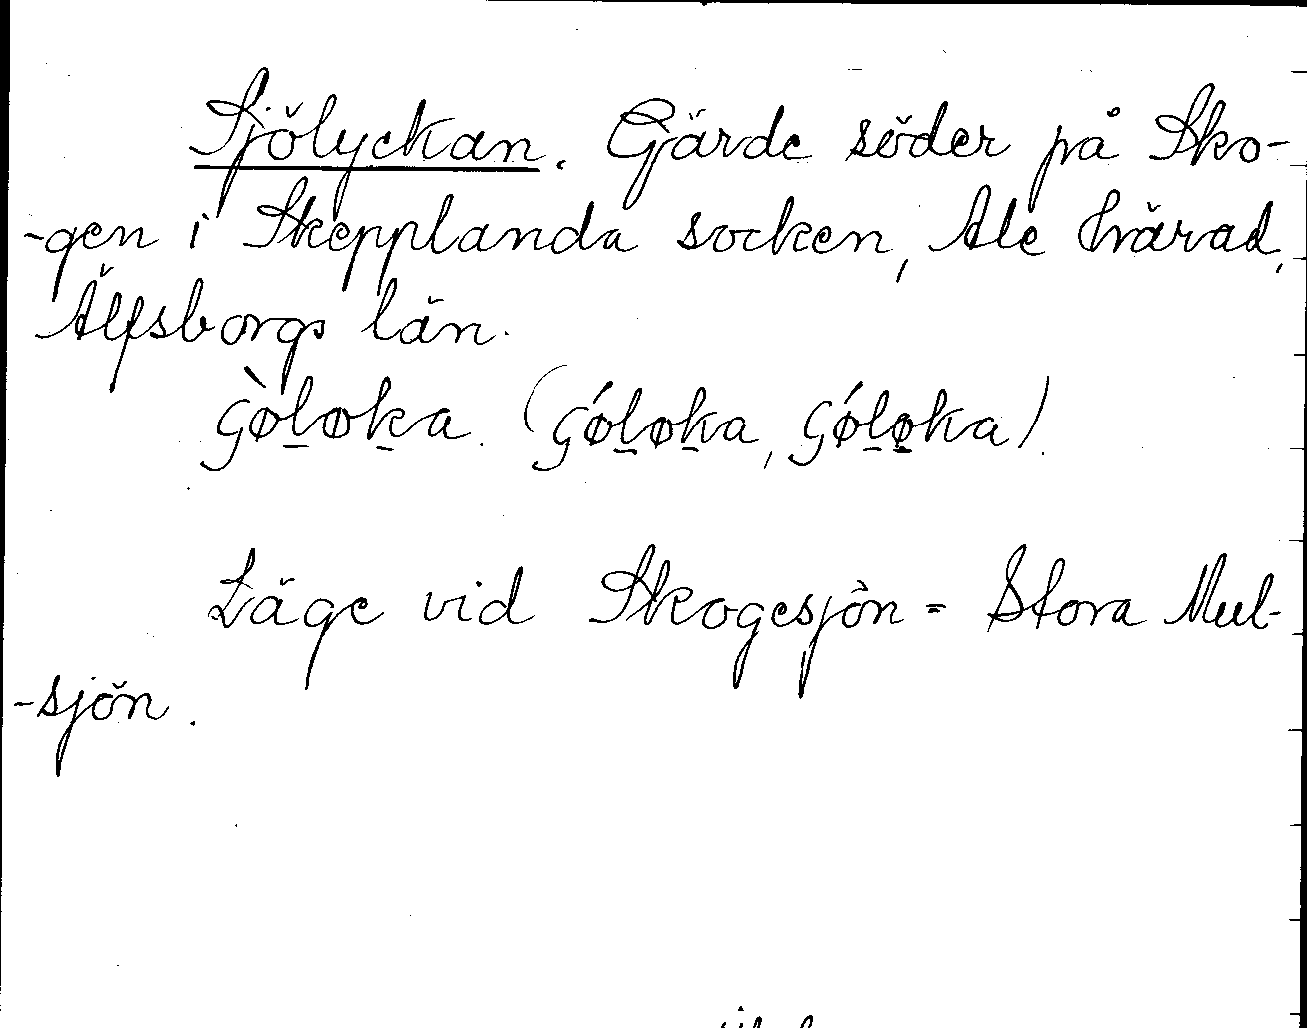 Sjölyckan. Gärde söder på Sko-
-gen i Skepplanda socken, Ale härad,
Älfsborgs län.
ʂø̀lơka. (ʂǿlơka, ʂǿlơka)
Läge vid Skogesjön = Stora Mul-
-sjön.